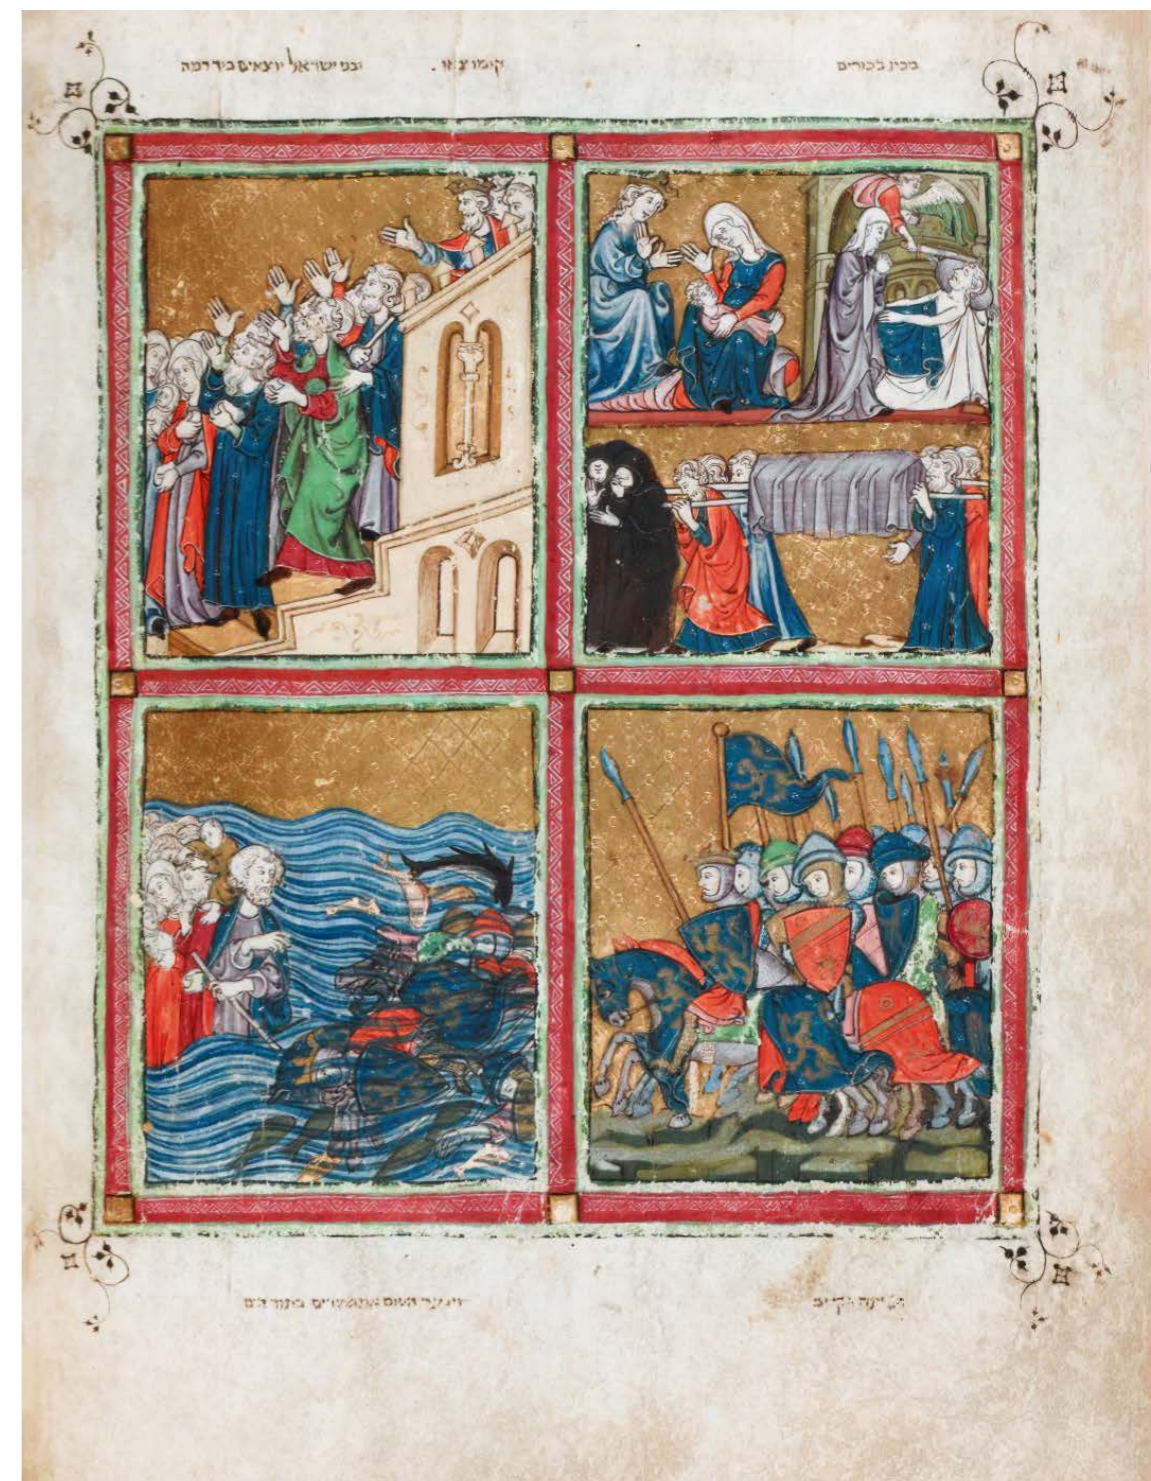 מכת בכורים
קומו צאו . ובני ישראל יוצאים ביד רמה
וינער השם את מצרים בתוך הים